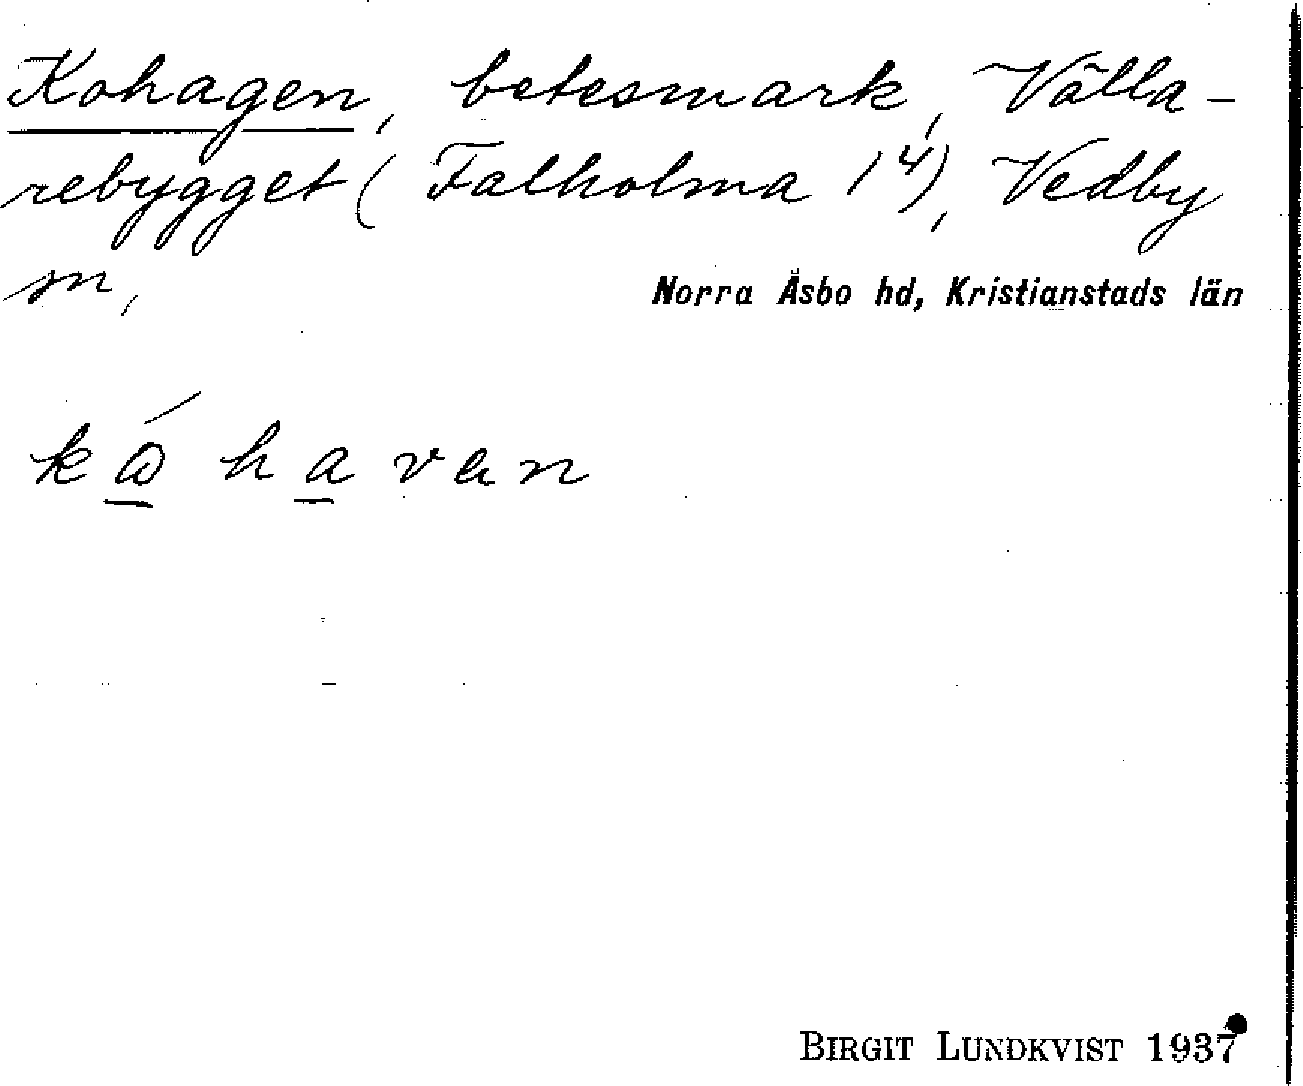 Kohagen, betesmark, Välla-
rebygget (Falholma 1⁴), Vedby
sn,
Norra Åsbo hd, Kristianstads län
havan
BIRGIT LUNDKVIST 1937